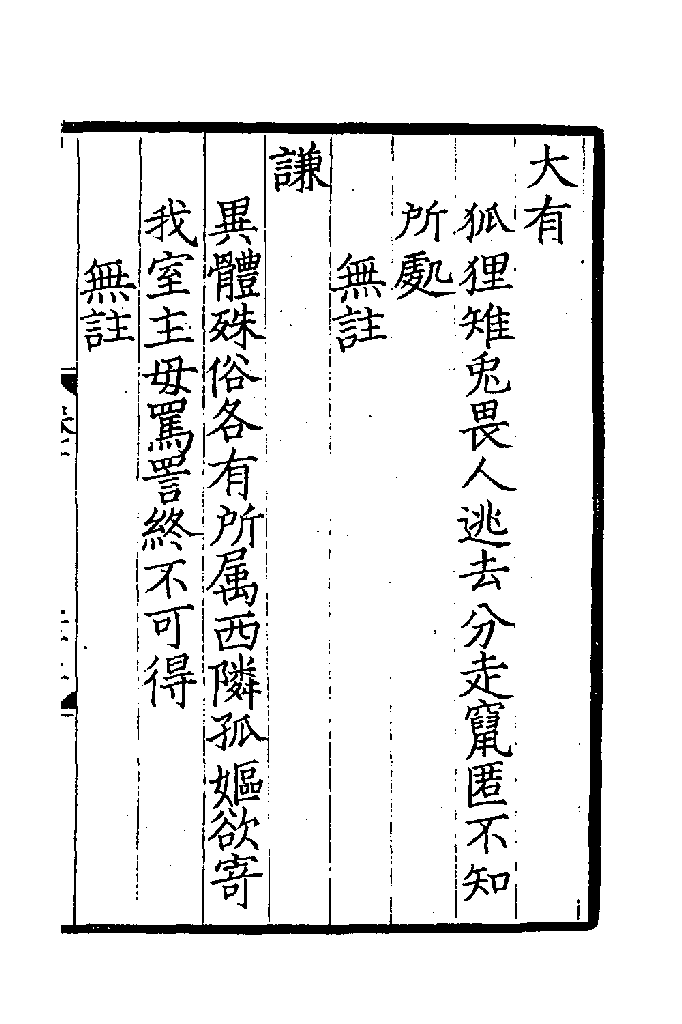 大有
狐狸雉兎畏人逃去分走竄匿不知
所處
無註
謙
異體殊俗各有所属西隣孤嫗欲寄
我室主毋罵詈終不可得
無註